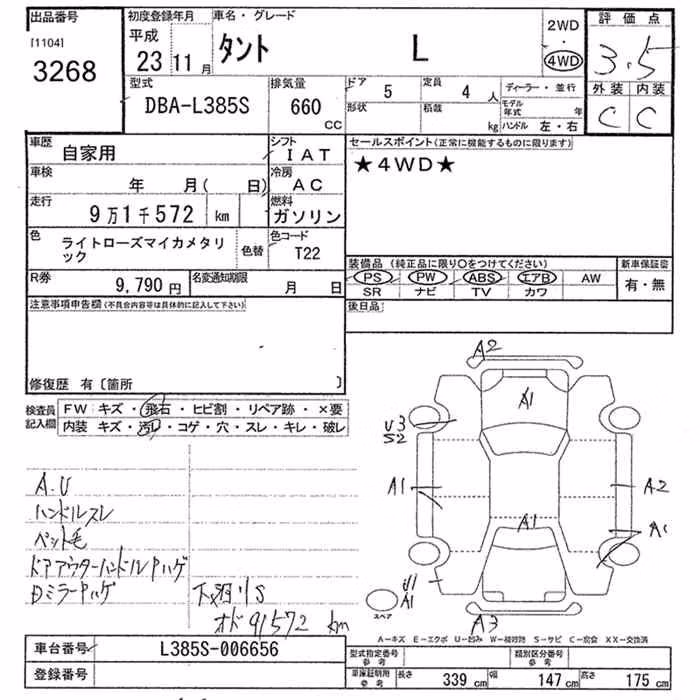 出品番号
[1104]
3268
初度登録年月
平成
23 11 月
車名・グレード
タント L
2WD
・
4WD
評価点
3.5
外装 内装
C C
型式
DBA-L385S
排気量
660
CC
ドア 5
定員 4 人
ディーラー・並行
形状
積載 kg
モデル年式 年
ハンドル 左・右
車歴
自家用
シフト
IAT
車検
年 月( 日)
冷房
AC
走行
9万1千572 km
燃料
ガソリン
色
ライトローズマイカメタリック
色替
色コード
T22
R券
9,790円
名変通知期限
月 日
セールスポイント(正常に機能するものに限ります)
★4WD★
装備品(純正品に限り○をつけてください)
PS PW ABS エアB AW
SR ナビ TV カワ
新車保証書
有・無
後日品
注意事項申告欄(不具合内容等は具体的に記入して下さい)
修復歴 有〔箇所 〕
検査員
記入欄
FW キズ・飛石・ヒビ割・リペア跡・×要
内装 キズ・汚レ・コゲ・穴・スレ・キレ・破レ
A.U
ハンドルスレ
ペット毛
ドアアウターハンドルPハゲ
DミラーPハゲ
下廻りS
オド91572 km
A2
A1
U3
S2
A1
A2
A1
A1
U1
A1
スペア
A3
A-キズ E-エクボ U-凹み W-補修跡 S-サビ C-腐食 XX-交換済
車台番号
L385S-006656
登録番号
型式指定番号
参考
類別区分番号
参考
車庫証明用
参考
長さ 339 cm
幅 147 cm
高さ 175 cm